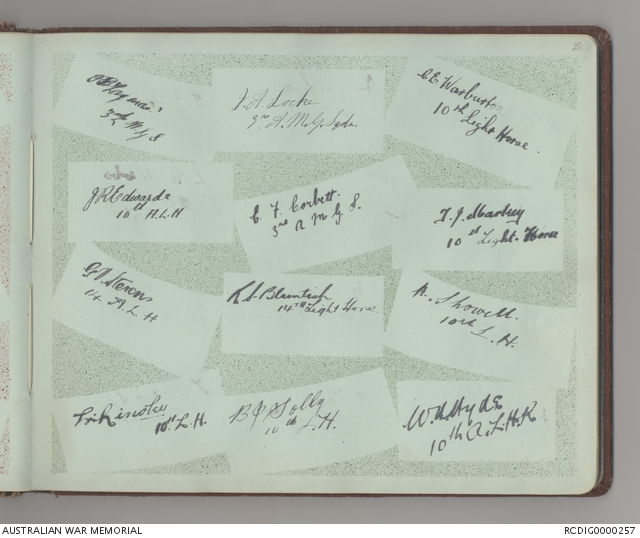 3rd M.G.S
J. A. Locke
3rd A. M. G. Sqdn.
C E Warburton
10th Light Horse.
J R Edwards
10th A. L. H
C. F. Corbett.
3rd A M G S.
T. J.
10th Light. Horse
G Stevens
14 A. L. H
R. S.
14TH Light Horse.
Showell.
10th L. H.
10th L. H.
B P Solly
10th L. H.
W. A. Hyde
10th A. L. H. R
AUSTRALIAN WAR MEMORIAL
RCDIG0000257